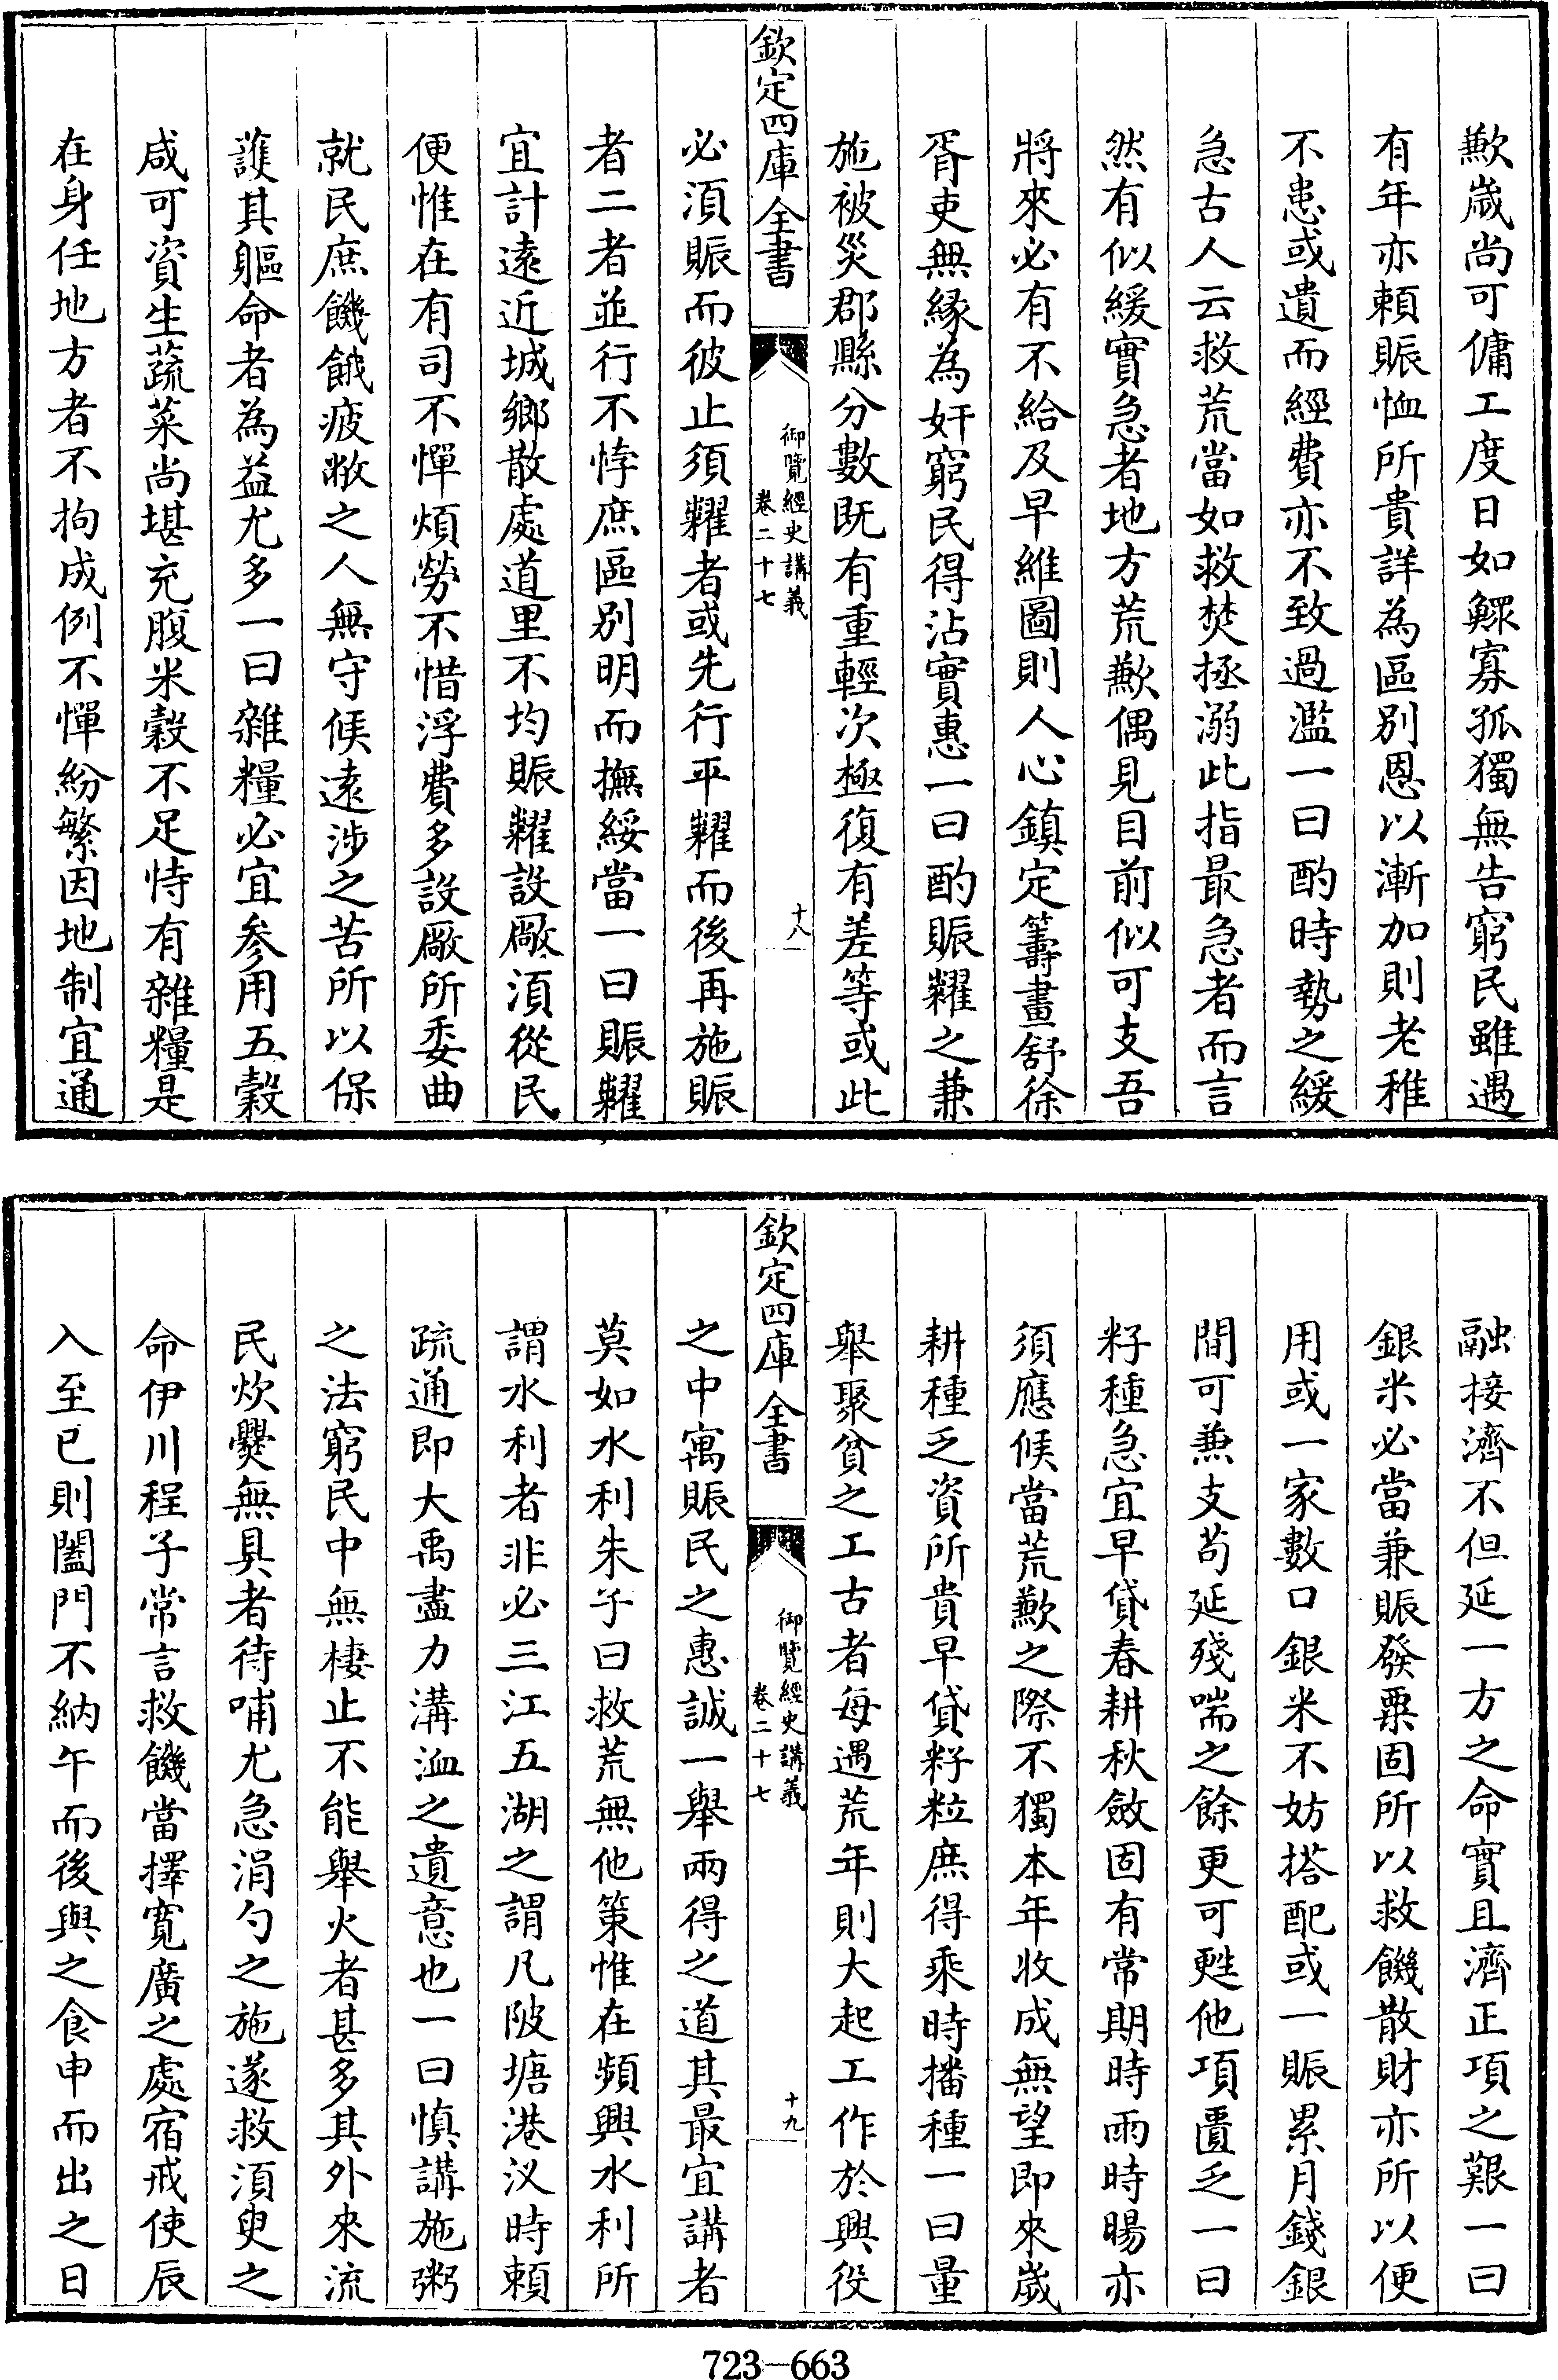 歉嵗尚可傭工度日如鰥寡孤獨無告窮民雖遇
有年亦頼賑恤所貴詳為區别恩以漸加則老稚
不患或遺而經費亦不致過濫一曰酌時勢之緩
急古人云救荒當如救焚拯溺此指最急者而言
然有似緩實急者地方荒歉偶見目前似可支吾
將來必有不給及早維圖則人心鎮定籌畫舒徐
胥吏無縁為奸窮民得沾實惠一曰酌賑糶之兼
施被災郡縣分數既有重輕次極復有差等或此
欽定四庫全書
御覽經史講義
卷二十七
十八
必湏賑而彼止須糶者或先行平糶而後再施賑
者二者並行不悖庶區别明而撫綏當一曰賑糶
宜計逺近城鄉散處道里不均賑糶設厰湏從民
便惟在有司不憚煩勞不惜浮費多設厰所委曲
就民庶饑餓疲敝之人無守候逺涉之苦所以保
䕶其軀命者為益尤多一曰雜糧必宜参用五穀
咸可資生蔬菜尚堪充腹米穀不足恃有雜糧是
在身任地方者不拘成例不憚紛繁因地制宜通
融接濟不但延一方之命實且濟正項之艱一曰
銀米必當兼賑發粟固所以救饑散財亦所以便
用或一家數口銀米不妨搭配或一賑累月錢銀
間可兼支苟延殘喘之餘更可甦他項匱乏一曰
籽種急宜早貸春耕秋斂固有常期時雨時暘亦
須應候當荒歉之際不獨本年收成無望即來嵗
耕種乏資所貴早貸籽粒庶得乘時播種一曰量
舉聚貧之工古者每遇荒年則大起工作於興役
欽定四庫全書
御覽經史講義
卷二十七
十九
之中寓賑民之惠誠一舉兩得之道其最宜講者
莫如水利朱子曰救荒無他策惟在頻興水利所
謂水利者非必三江五湖之謂凡陂塘港汊時頼
疏通即大禹盡力溝洫之遺意也一曰慎講施粥
之法窮民中無棲止不能舉火者甚多其外來流
民炊爨無具者待哺尤急涓勺之施遂救湏臾之
命伊川程子常言救饑當擇寛廣之處宿戒使辰
入至巳則闔門不納午而後與之食申而出之日
723-663